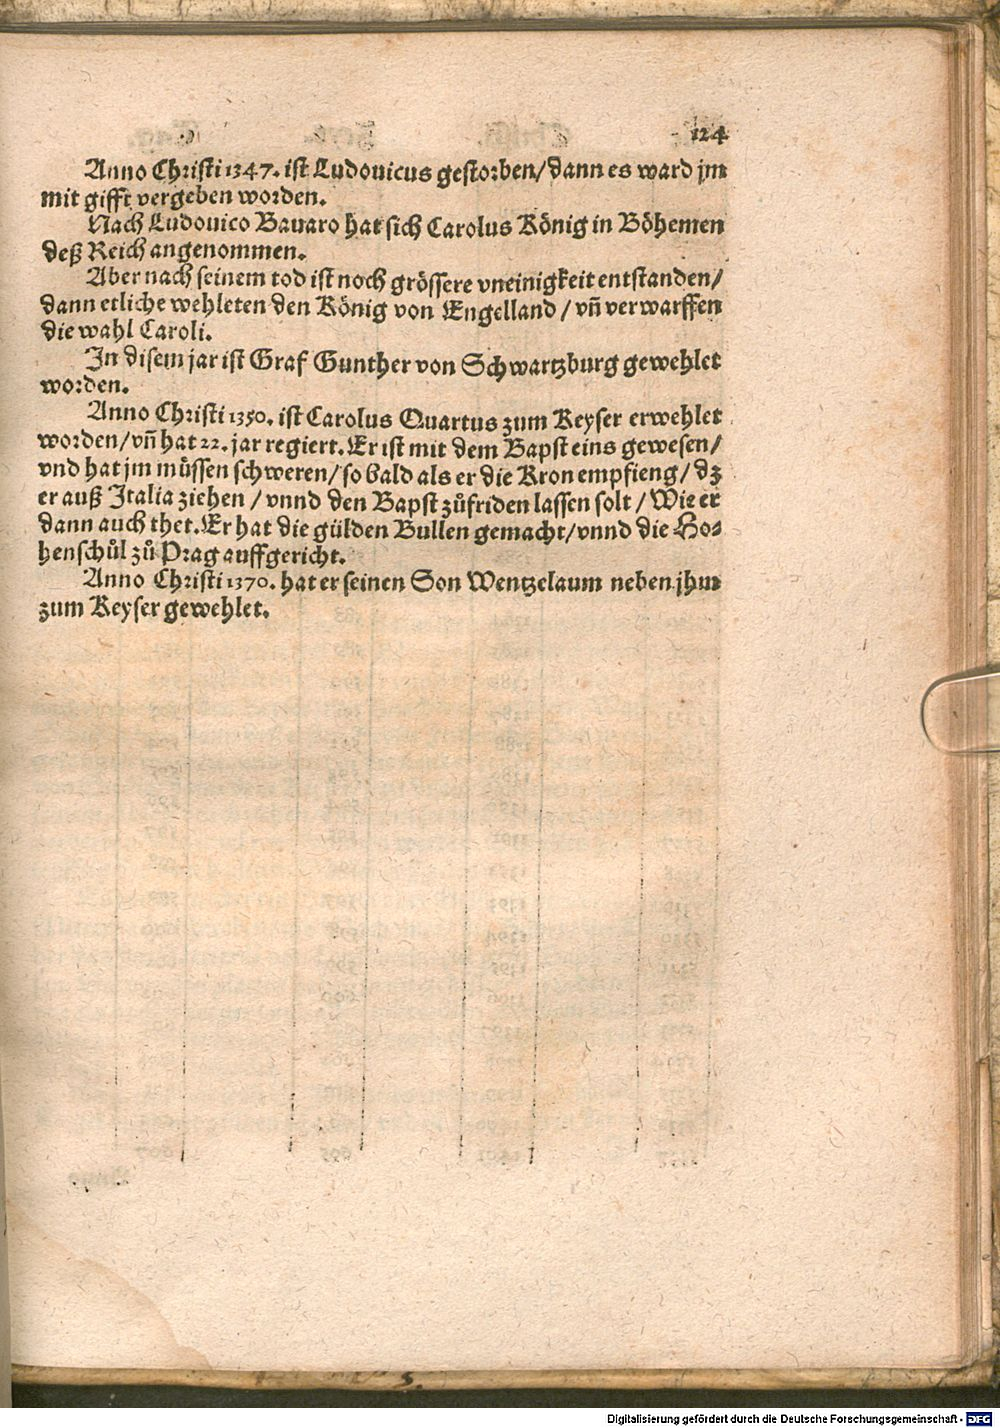 124
Anno Christi 1347. ist Ludouicus gestorben/dann es ward jm
mit gifft vergeben worden.
Nach Ludouico Bauaro hat sich Carolus König in Böhemen
deß Reich angenommen.
Aber nach seinem tod ist noch grössere vneinigkeit entstanden/
dann etliche wehleten den König von Engelland / vñ verwarffen
die wahl Caroli.
In disem jar ist Graf Gunther von Schwartzburg gewehlet
worden.
Anno Christi 1350. ist Carolus Quartus zum Keyser erwehlet
worden/vñ hat 22. jar regiert. Er ist mit dem Bapst eins gewesen/
vnd hat jm müssen schweren/so bald als er die Kron empfieng/dz
er auß Italia ziehen / vnnd den Bapst zůfriden lassen solt / Wie er
dann auch thet. Er hat die gülden Bullen gemacht/vnnd die Ho-
henschůl zů Prag auffgericht.
Anno Christi 1370. hat er seinen Son Wentzelaum neben jhm
zum Keyser gewehlet.
Digitalisierung gefördert durch die Deutsche Forschungsgemeinschaft - DFG